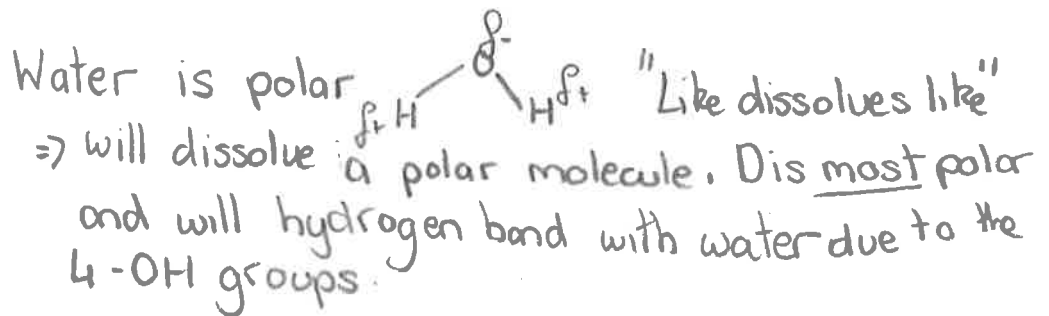 δ-
Water is polar O "Like dissolves like"
δ+ H H δ+
⇒ will dissolve a polar molecule. D is most polar
and will hydrogen bond with water due to the
4 -OH groups.